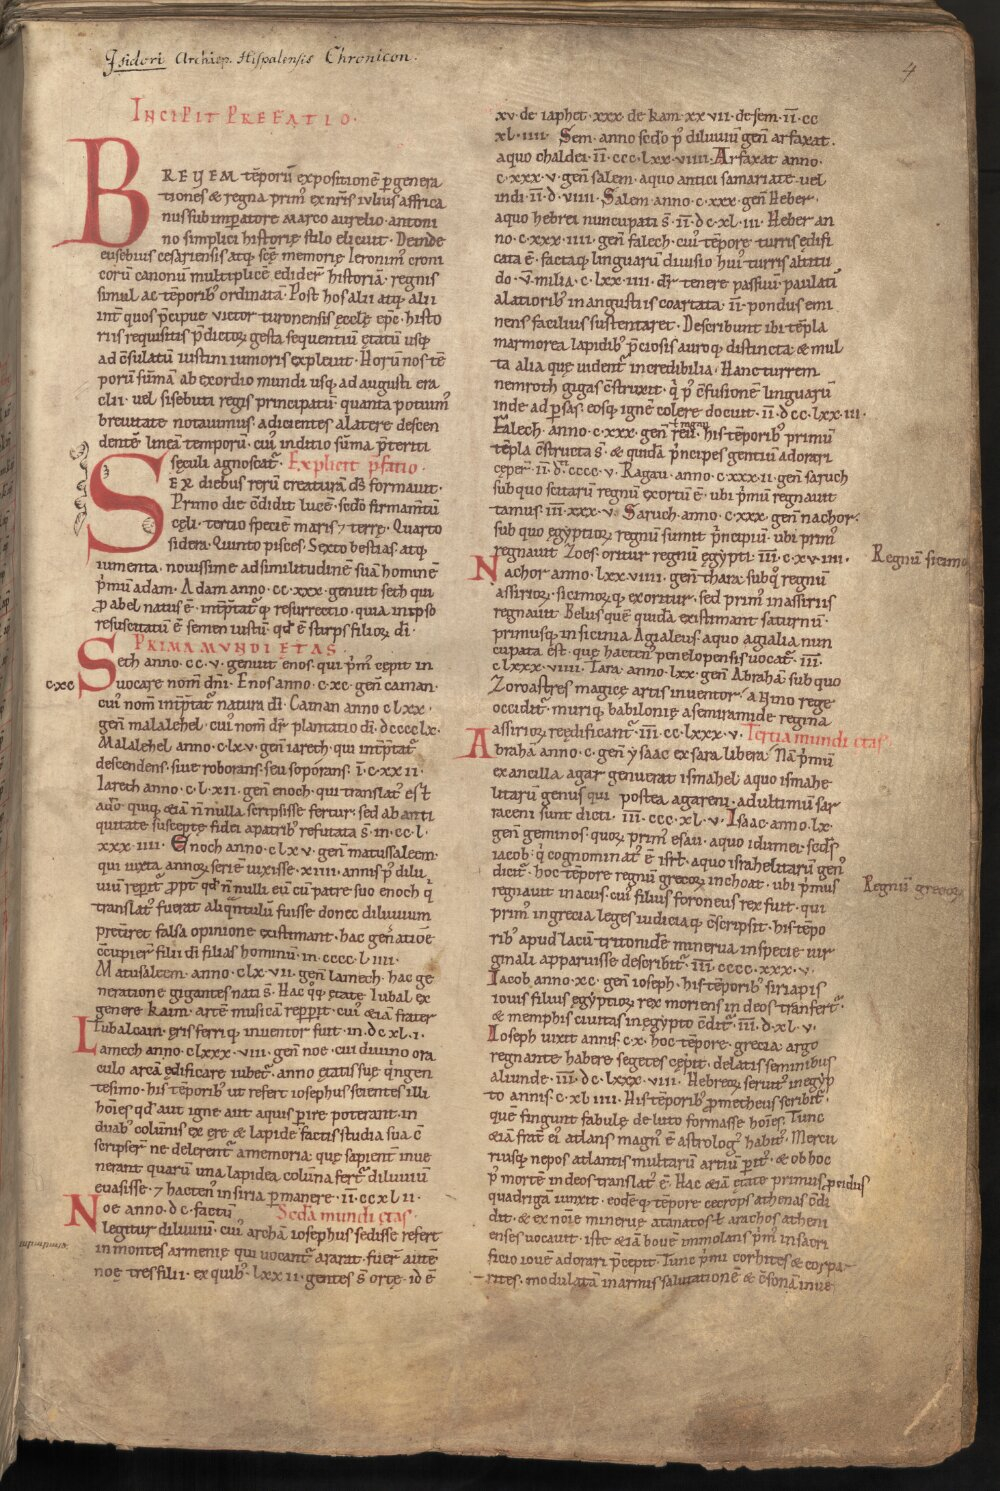 Isidori Archiep. Hispalensis Chronicon.
4
INCIPIT PREFATIO.
BREVEM tēporū expositionē ꝑ genera
tiones & regna primꝰ ex nr̄is iulius affrica
nus sub imꝑatore marco aurelio antoni
no simplici historię stilo elicuit. Deinde
eusebius cesariensis atq; scę memorię ieronimꝰ croni
corū canonū multiplicē edider̄ historiā. regnis
simul ac tēporibꝰ ordinatā. Post hos alii atq; alii
int̄ quos p̄cipue victor turonensis ęcclę ep̄c. histo
riis requisitis p̄dictoꝝ gesta sequentiū ętatū usq;
ad c̄sulatū iustini iunioris expleuit. Horū nos tē
porū sūmā ab exordio mundi usq; ad augusti era
clii. uel sisebuti regis principatū. quanta potuimꝰ
breuitate notauimus. adicientes a latere descen
dentē lineā temporū. cuiꝰ inditio sūma p̄teriti
sęculi agnoscatr̄. Explicit p̄fatio.
SEX diebus rerū creaturā ds̄ formauit.
Primo die c̄didit lucē. sc̄do firmamtū
cęli. tertio speciē maris ⁊ terrę. Quarto
sidera. Quinto pisces. Sexto bestias atq;
iumenta. nouissime ad similitudinē suā hominē
p̄mū adam. Adam anno. cc.xxx. genuit seth qui
ꝓ abel natus ē. int̄p̄tatr̄ q; resurrectio. quia in ipso
resuscitatū ē semen iustū qd̄ ē stirps filioꝝ dī.
PRIMA MVNDI ETAS.
Seth anno cc.v. genuit enos. qui p̄mꝰ cępit in
c.xc
uocare nomē dn̄i. Enos anno. c.xc. gen̄ cainan.
cuiꝰ nom̄ int̄p̄tatr̄ natura dī. Cainan anno clxx.
gen̄ malalehel. cuiꝰ nom̄ dr̄ plantatio dī. dcccclx.
Malalehel anno. c.lx.v. gen̄ iareth. qui int̄p̄tatr̄
descendens. siue roborans. seu soporans. ī.c.xx ii.
Iareth anno. c.l.xii. gen̄ enoch. qui translatꝰ est
a dō. quiq; &iā n̄nulla scripsisse fertur. sed ob anti
quitate suscepte fidei a patribꝰ refutata s̄. in.cc.l.
xxx iiii. Enoch anno. c lx v. gen̄ matussalem.
qui iuxta annoꝝ seriē uixisse. xiiii. annis p̄ dilu
uiū repit̄. ꝓpt̄ qd̄ n̄nulli eū cū patre suo enoch q
translatꝰ fuerat aliqntulū fuisse donec diluuium
pretiret falsa opinione existimant. hac gen̄atiōe
c̄cupier̄ filii dī filias hominū. in.cccc.l iiii.
Matusalem. anno. c lx vii. gen̄ lamech. hac ge
neratione gigantes nati s̄. Hac qq; ętate. Iubal ex
genere kaim. artē musicā repp̄it. cuiꝰ &iā frater
Tubalcain. ęris ferriq; inuentor fuit. in.dc xl.i.
Lamech anno. clxxx.viii. gen̄ noe. cui diuino ora
culo arcā ędificare iubetr̄. anno ętatis suę qngen
tesimo. his tēporibꝰ ut refert iosephus scientes illi
hoīes qd̄ aut igne aut aquis ꝑire poterant. in
duabꝰ colūnis ex ęre & lapide factis studia sua c̄
scripser̄ ne delerentr̄ a memoria. quę sapient̄ inue
nerant. quarū una lapidea colūna fertr̄ diluuiū
euasisse. ⁊ hactenꝰ in siria ꝑmanere. ii.ccxl ii.
Noe anno. d c. factū Sc̄da mundi ętas.
legitur diluuiū. cuiꝰ archā iosephus sedisse refert
in montes armenię. qui uocantr̄ ararat. fuer̄ autē
noę tres filii. ex quibꝰ. lxx ii. gentes s̄ ortę. id ē
xv. de iaphet. xxx. de kam. xx vii. de sem. ii. cc
xl. iiii. Sem. anno sc̄do p̄ diluuiū gen̄ arfaxat.
a quo chaldei. ii. ccc. lxx. viiii. Arfaxat anno.
c.xxx.v. gen̄ salem. a quo antici samaritate uel
indi. ii. d. viiii. Salem anno. c.xxx. gen̄ Heber.
a quo hebrei nuncupati s̄. ii. dc xl. iii. Heber an
no. c.xxx.iiii. gen̄ falech. cuiꝰ tēpore turris edifi
cata ē. factaq; linguarū diuisio. huiꝰ turris altitu
do. v. milia. c.lxx.iiii. dr̄ tenere passuū. paulatī
a latioribꝰ in angustiis coartata. ii. pondus emi
nens facilius sustentaret. Describunt ibi tēpla
marmorea lapidibꝰ p̄ciosis auroq; distincta. & mul
ta alia quę uidentr̄ incredibilia. Hanc turrem
nemroth gigas c̄struxit. q p̄ c̄fusionē linguarū
inde ad ꝑsas. eosq; ignē colere docuit. ii. dcc. lxx. iii.
Falech. anno. c.xxx. gen̄ reū. his tēporibꝰ primū
tēpla c̄structa s̄. & quidā p̄ncipes gentiū adorari
cęper̄. ii. d. cccc. v. Ragau. anno. c.xxx.ii. gen̄ saruch
sub quo scitarū regnū exortū ē. ubi p̄mꝰ regnauit
tamus. iii. xxx. v. Saruch. anno. c.xxx. gen̄ nachor.
sub quo egyptioꝝ regnū sumit p̄ncipiū. ubi primꝰ
regnauit Zoes. oritur regnū ęgypti. iii. c.xv.iiii.
Regnū sicinioꝝ
Nachor anno. lxx. viiii. gen̄ thara. sub q regnū
assirioꝝ. sicinioꝝq; exoritur. sed primꝰ in assiriis
regnauit Belus quē quidā existimant saturnū.
primusq; in sicinia Agialeus. a quo agialia nun
cupata est. quę hactenꝰ penelopensis uocatr̄. iii.
c lxxx. viiii. Tara. anno. lxx. gen̄ Abrahā sub quo
Zoroastres magicę artis inuentor. a Nino rege
occiditr̄. muriq; babilonię a semiramide regina
assirioꝝ reędificantr̄. iii. cc. lxxx. v. Tertia mundi ętas.
Abrahā anno. c. gen̄ ysaac ex sara libera. Nā p̄mū
ex ancilla agar genuerat ismahel. a quo ismahe
litarū genus qui postea agareni. ad ultimū sar
raceni sunt dicti. iii. ccc. xl. v. Isaac. anno. lx.
gen̄ geminos. quoꝝ primꝰ esau. a quo idumei. sc̄ds
iacob. q cognominatꝰ ē isrł. a quo israhelitarū genꝰ
dicitr̄. hoc tēpore regnū grecoꝝ inchoat. ubi p̄mus
Regnū grecoꝝ
regnauit inacus. cuiꝰ filius foroneus rex fuit. qui
primꝰ in grecia leges iudiciaq; c̄scripsit. his tēpo
ribꝰ apud lacū tritonidē minerua in specie uir
ginali apparuisse describitr̄. iii. cccc. xxx. v.
Iacob. anno. xc. gen̄ ioseph. his tēporibꝰ siriapis
iouis filius ęgyptioꝝ rex moriens in deos tranfertr̄.
& memphis ciuitas in egypto c̄ditr̄. iii. d. xl. v.
Ioseph uixit annis. c.x. hoc tēpore. grecia. argo
regnante habere segetes cępit. delatis seminibus
aliunde. iii. dc. lxxx. viii. Hebreoꝝ seruitꝰ in egyp
to annis. c xl iiii. His tēporibꝰ ꝓmetheus scribitr̄.
quē fingunt fabulę de luto formasse hoīes. Tunc
&iā frat̄ eiꝰ atlans magnꝰ ē astrologꝰ habitꝰ. Mercu
riusq; nepos atlantis multarū artiū ꝑitꝰ. & ob hoc
p̄ mortē in deos translatꝰ ē. Hac &iā ętate primus p̄cidus
quadrigā iunxit. eodēq; tēpore cecrops athenas c̄di
dit. & ex noīe minerue atanatos ł arachos atheni
enses uocauit. iste &iā bouē immolans p̄mꝰ in sacri
ficio iouē adorari p̄cepit. Tunc p̄mi corbites & corpa-
rites. modulatā in armis salutationē & c̄sonā inue